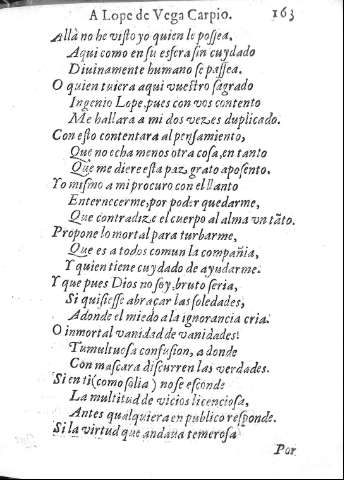 A Lope de Vega Carpio. 163
Allà no he visto yo quien le possea,
Aqui como en su esfera sin cuydado
Diuinamente humano se passea.
O quien tuiera aqui vuestro sagrado
Ingenio Lope, pues con vos contento
Me hallara a mi dos vezes duplicado.
Con esto contentara al pensamiento,
Que no echa menos otra cosa, en tanto
Que me diere esta paz, grato aposento.
Yo mismo a mi procuro con el llanto
Enternecerme, por poder quedarme,
Que contradize el cuerpo al alma vn tãto.
Propone lo mortal para turbarme,
Que es a todos comun la compañia,
Y quien tiene cuydado de ayudarme.
Y que pues Dios no soy, bruto seria,
Si quisiesse abraçar las soledades,
Adonde el miedo a la ignorancia cria.
O inmortal vanidad de vanidades!
Tumultuosa confusion, a donde
Con mascara discurren las verdades.
Si en ti (como solia) no se esconde
La multitud de vicios licenciosa,
Antes qualquiera en publico responde.
Si la virtud que andaua temerosa
Por